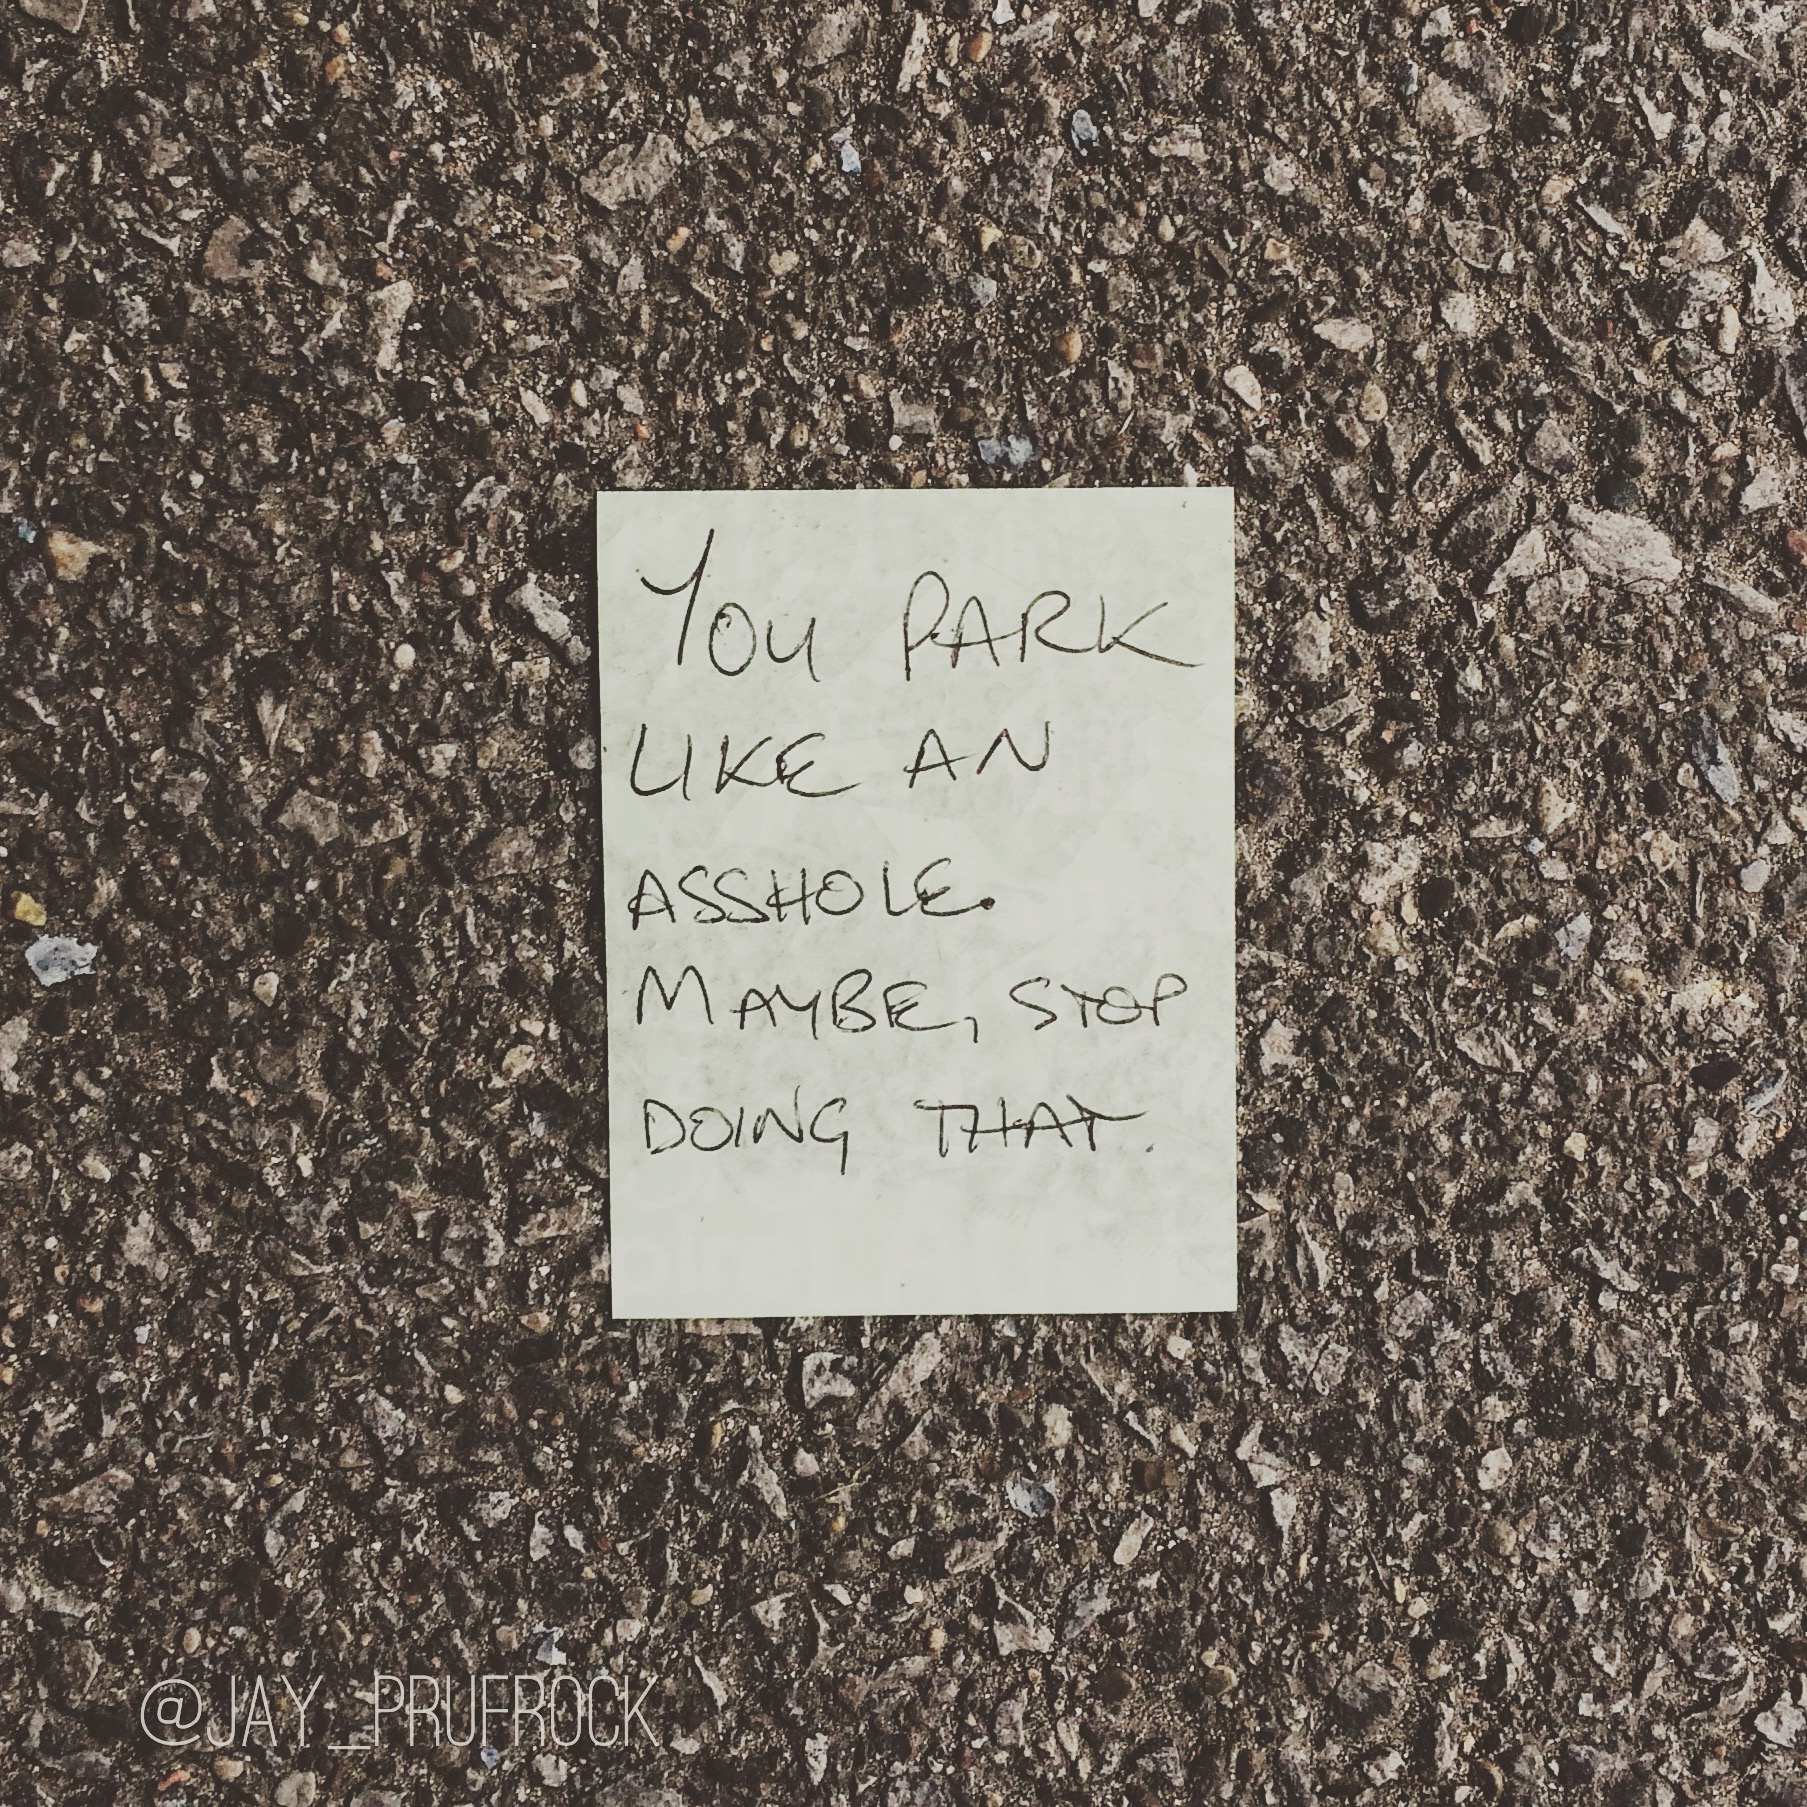 You PARK
LIKE AN
ASSHOLE.
MAYBE, STOP
DOING THAT.
@JAY_PRUFROCK